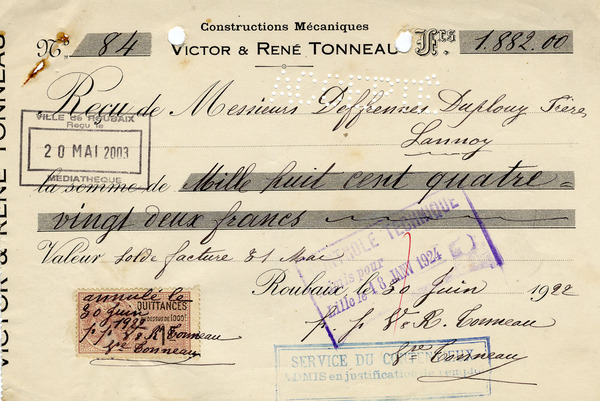 Constructions Mécaniques
VICTOR & RENÉ TONNEAU
N° 84
Frs 1.882.00
ACQUITTÉ
Reçu de Messieurs Deffrennes Duplouy Frères
Lannoy
VILLE de ROUBAIX
Reçu le
20 MAI 2003
MEDIATHEQUE
la somme de Mille huit cent quatre=
vingt deux francs
CONTROLE TECHNIQUE
Admis pour
Lille le 18 JANV 1924
Valeur Solde facture 31 Mai
Roubaix, le 30 Juin 1922
p. p. V & R. Tonneau
Vve Tonneau
QUITTANCES
annulé le
30 Juin
1922
p. p. V & R Tonneau
Vve Tonneau
SERVICE DU CONTENTIEUX
ADMIS en justification de remploi
VICTOR & RENÉ TONNEAU